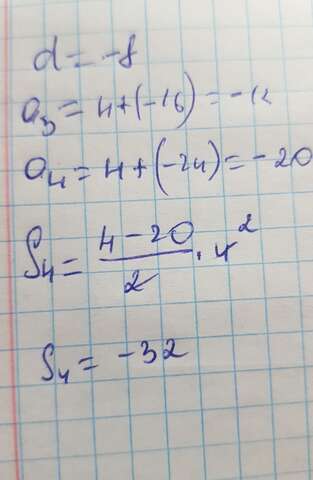 d = -8
a₃ = 4+(-16) = -12
a₄ = 4+(-24) = -20
S₄ = (4-20)/2 · 4 2
S₄ = -32